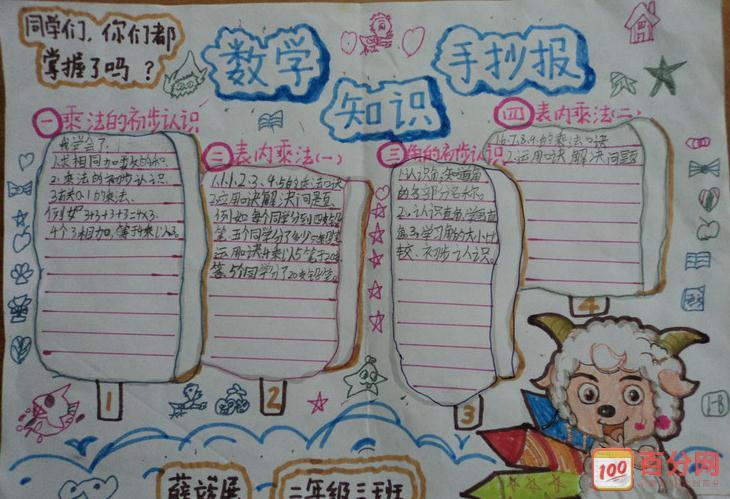 同学们,你们都
掌握了吗?
数学
知识
手抄报
一乘法的初步认识
我学会了:
1.求相同加数的和。
2.乘法的初步认识。
3.有关0.1的乘法。
例如 3+3+3+3=4×3.
4个3相加,等于4乘以3。
1
二表内乘法(一)
1.1.1.2.3、4.5的乘法口诀
2.应用口诀解决问题
例如每个同学分到四支铅
笔,五个同学分了多少支铅笔
运用口诀4乘以5等于20
答,5个同学分了20支铅笔。
2
三角的初步认识
1.认识角,知道角
的各部分名称。
2.认识直角,学画直
角,3,学习角的大小比
较、初步认识。
3
四表内乘法(二)
1.6.7.8.9.的乘法口诀
2.运用口诀解决问题
4
1-8
二年级三班
100
百分网